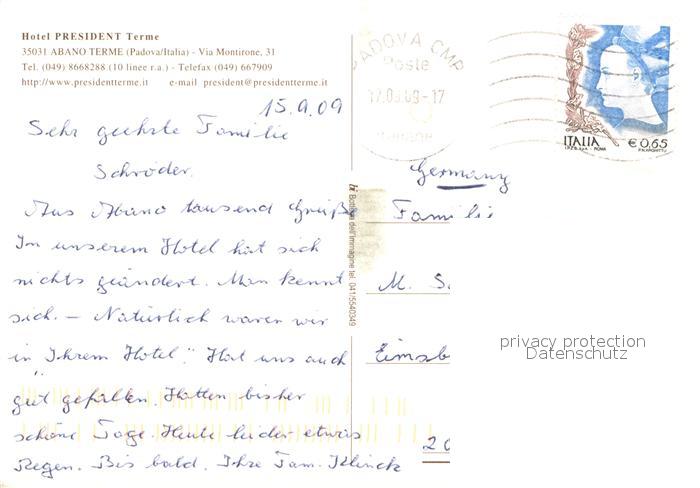 Hotel PRESIDENT Terme
35031 ABANO TERME (Padova/Italia) - Via Montirone, 31
Tel. (049) 8668288 (10 linee r.a.) - Telefax (049) 667909
http://www.presidentterme.it e-mail president@presidentterme.it
15.9.09
Sehr geehrte Familie
Schröder.
Aus Abano tausend Grüße
In unserem Hotel hat sich
nichts geändert. Man kennt
sich. – Natürlich waren wir
in "Ihrem Hotel". Hat uns auch
gut gefallen. Hatten bisher
schöne Tage. Heute leider etwas
Regen. Bis bald. Ihre Fam. Klinck
Bottega dell'immagine tel. 041/5540349
PADOVA CMP
Poste
17.09.09-17
ITALIA € 0,65
I.P.Z.S. S.p.A. - ROMA
Germany
Familie
M. S.
Eimsb
20
privacy protection
Datenschutz